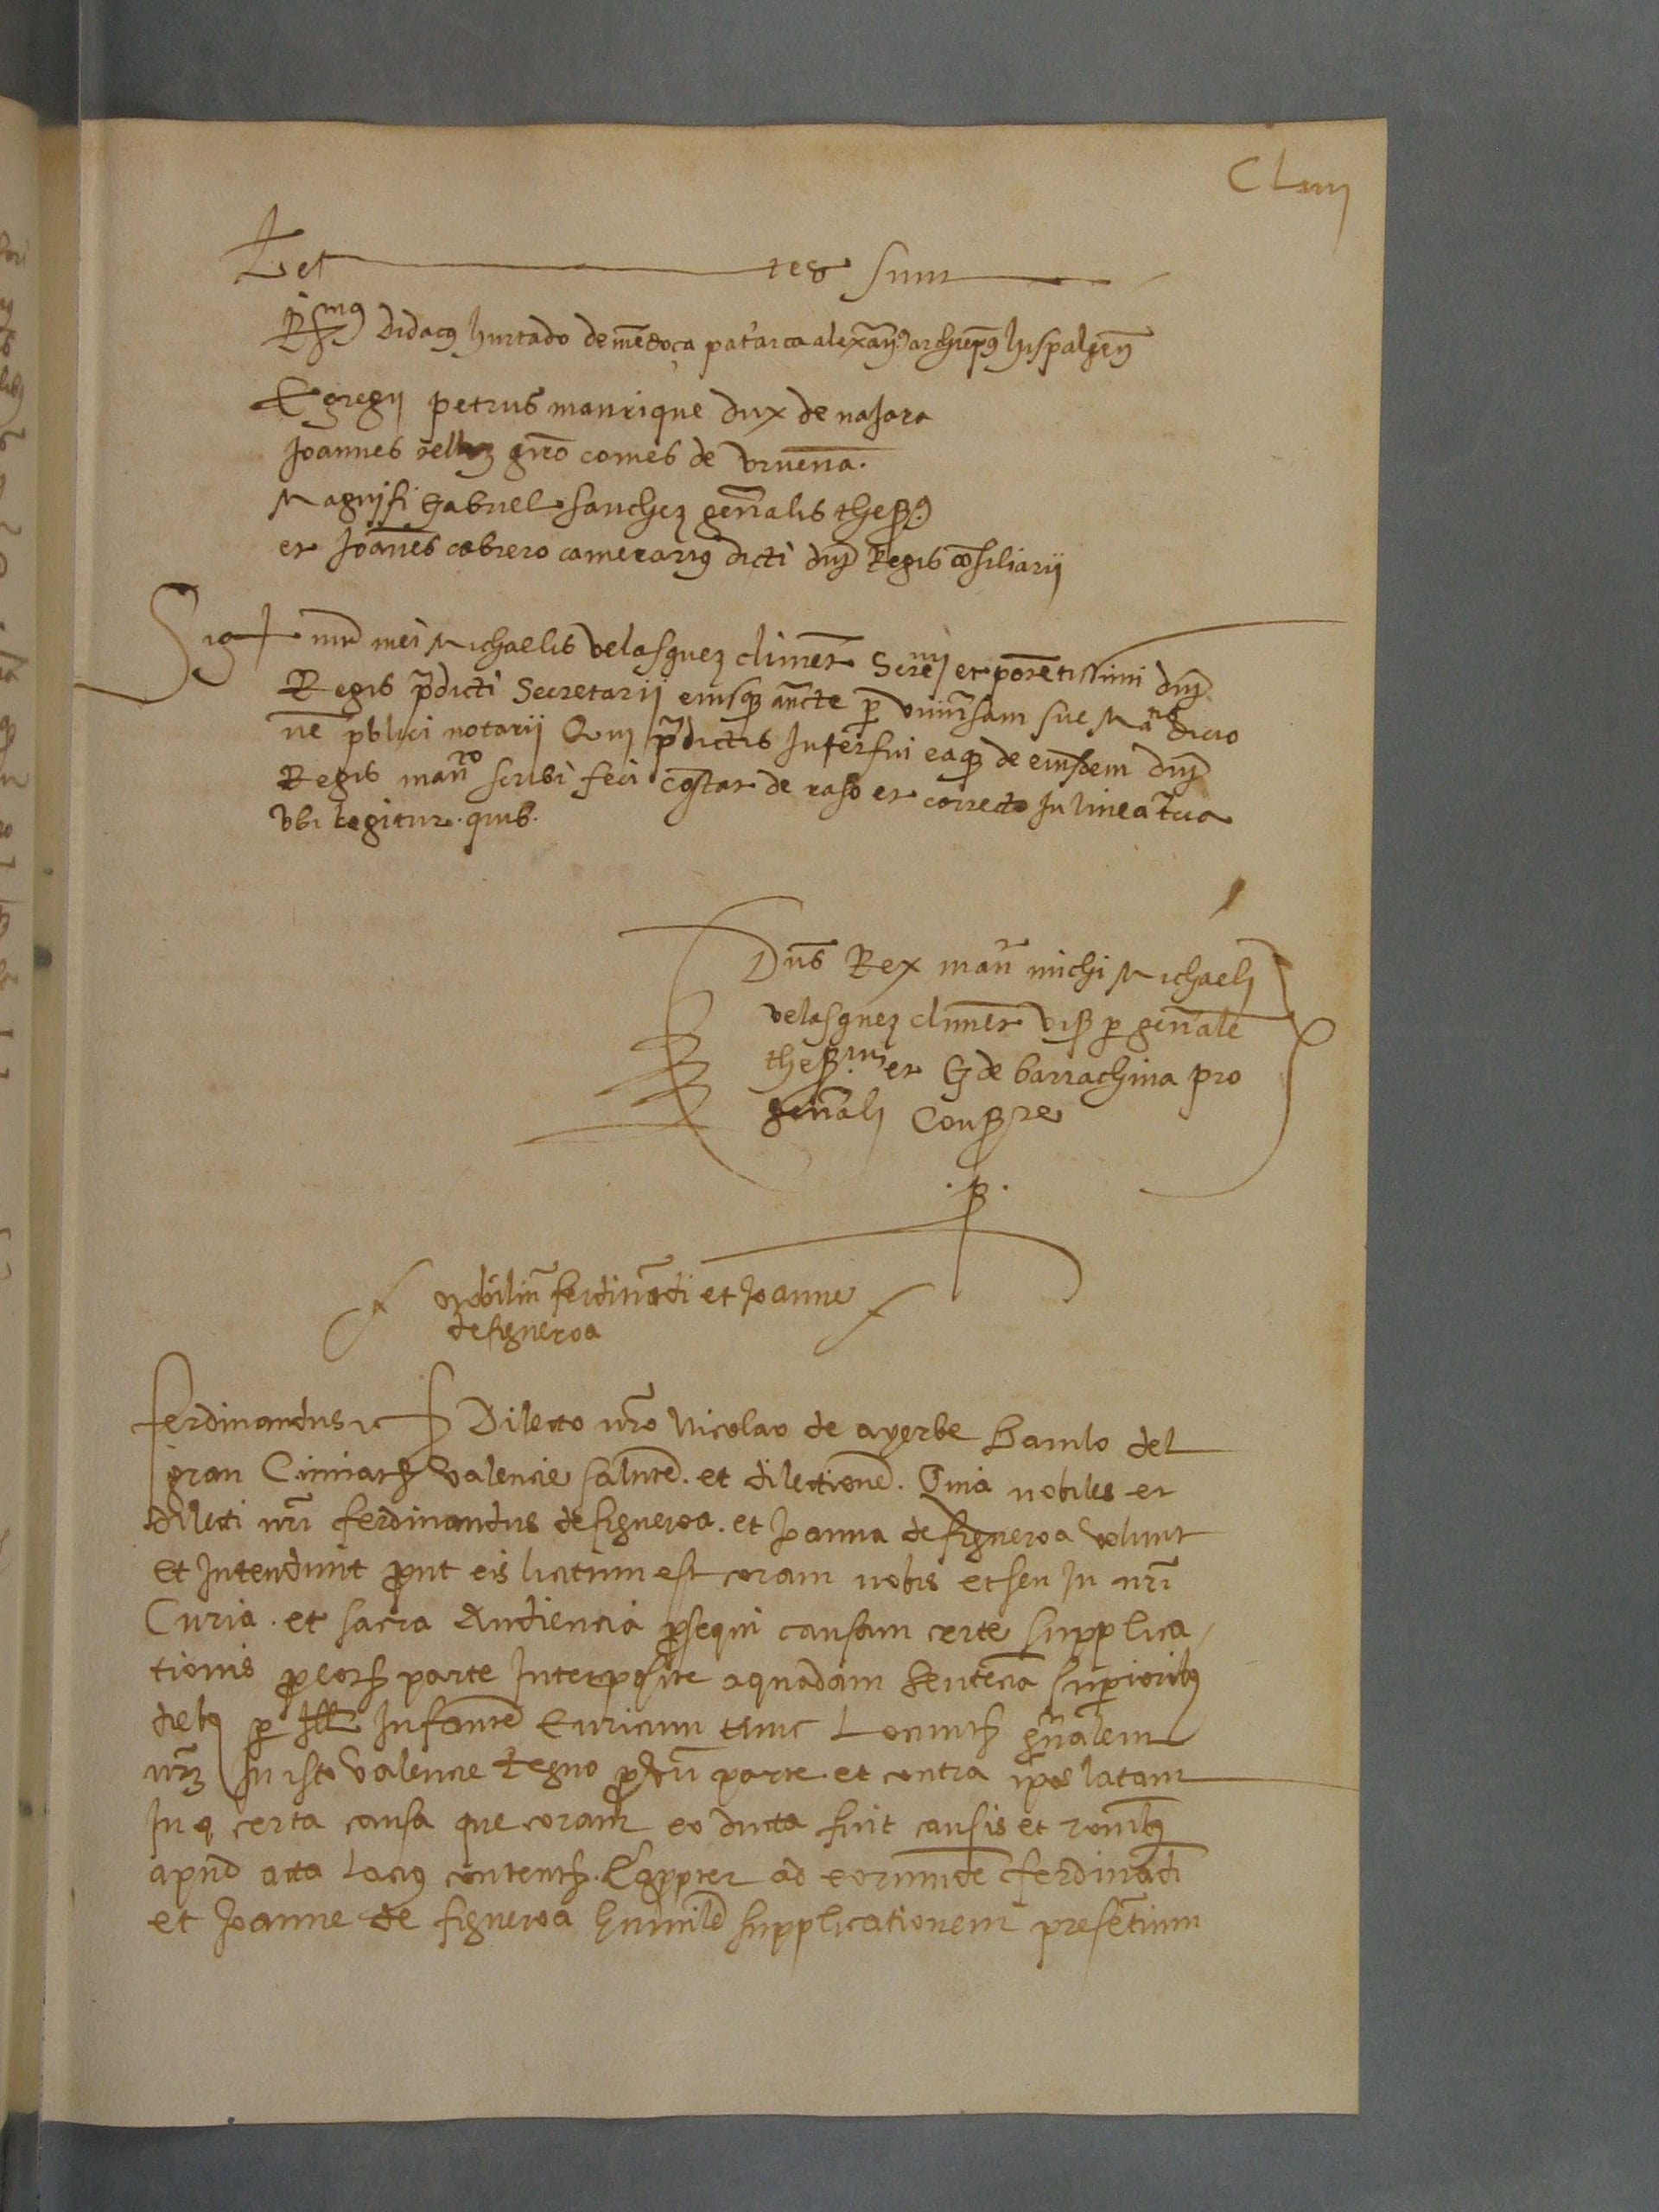 Clxiiij
Test tes sunt
Rmus Didacus hurtado de mẽdoça patarca alexañ archiepus hispalẽn
Egregij petrus manrique dux de najara
Joannes tellez giro comes de vruena.
Magnifi Gabriel sanchez gen̄alis thesꝰ
et Joañes cabrero camerariꝰ dicti dnj Regis cōsiliarij
Sig+num mei Michaelis velasquez climēt Serenmj et potētissimi dnj
Regis p̄dicti Secretarij eiusqz auc̄te per vniūsam sue Mati dicio
nē publici notarij Qui p̄dictis Interfui eaqz de eiusdem dnj
Regis manto scribi feci cōstat de raso et correcto In linea
vbi legitur. quib.
Dn̄s Rex man̄ michi Michaelj
velasquez climēt visa per gen̄ale
thesrium et G de barrachina pro
gen̄alj Conser͂e
.p.
nobiliu͂ ferdinādi et Joanne
de figueroa
ferdinandus &c Dilecto nr̄o Nicolao de ayerbe Baiulo del
gran Ciuitatis Valencie salutē. et dilectionē. Quia nobiles et
dilecti nr̄i ferdinandus de figueroa. et Joanna de figueroa volunt
et Intendunt put eis licitum est coram nobis et seu In nr̄i
Curia. et sacra Audiencia ꝓsequi causam certe supplica
tionis ꝓ eorum parte Interposite a quadam sentēcia supioribꝰ
diebꝰ per Ill Infantē Enricum tunc Locumtē gn̄alem
nr̄m In isto Valencie Regno parte. et contra ip̄os latam
In q certa causa que coram eo ducta fuit causis et ronibꝰ
apud acta laciꝰ contentis. Eapropter ad eorumdē ferdinādi
et Joanne de figueroa humilē supplicationem presētium